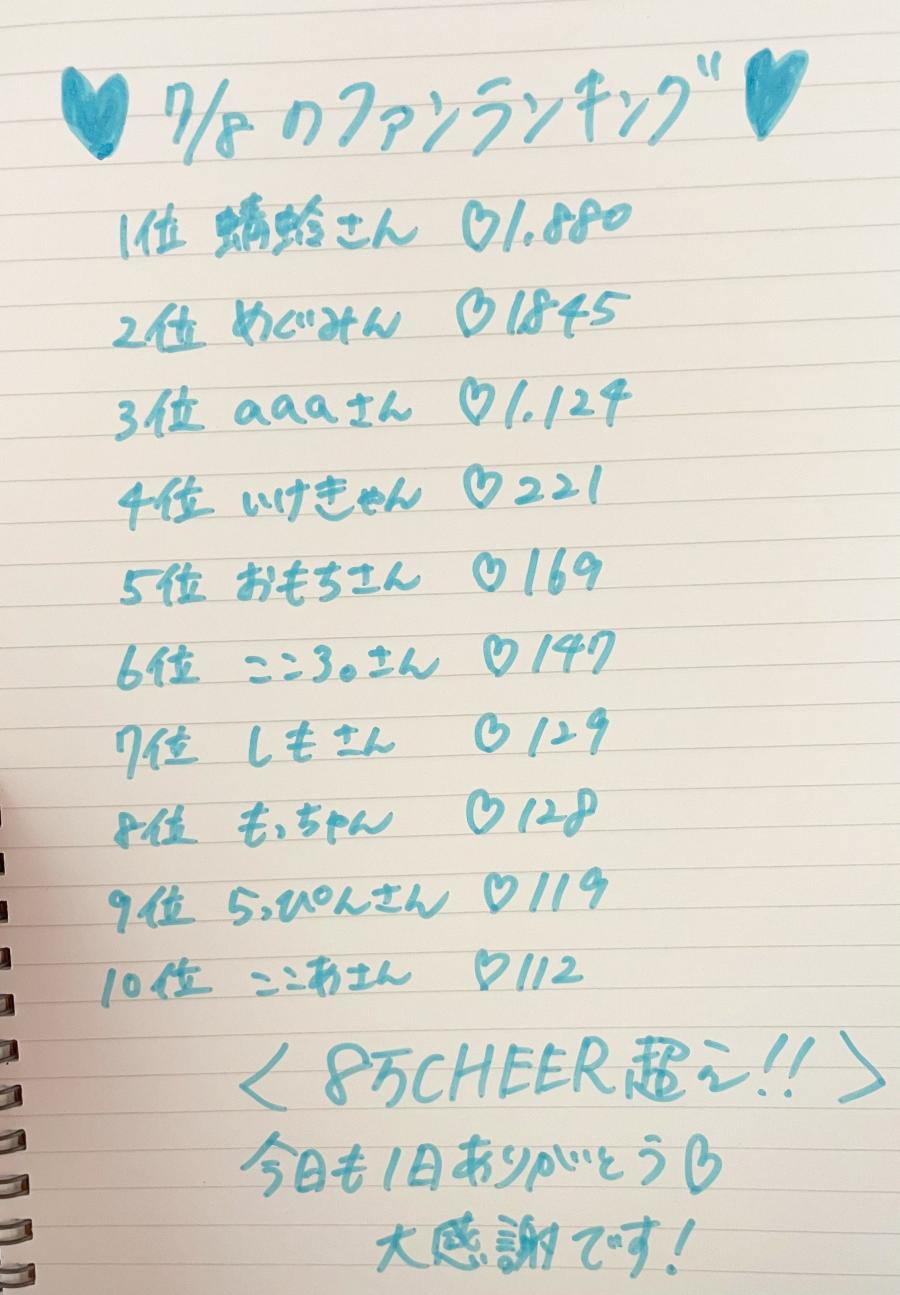 ♥ 7/8 のファンランキング ♥
1位 蜻蛉さん ♡1.880
2位 めぐみん ♡1845
3位 aaaさん ♡1.124
4位 いけきゃん ♡221
5位 おもちさん ♡169
6位 こころ。さん ♡147
7位 しもさん ♡129
8位 もっちゃん ♡128
9位 らっぴんさん ♡119
10位 ここあさん ♡112
＜ 8万CHEER超え!! ＞
今日も1日ありがとう♡
大感謝です!